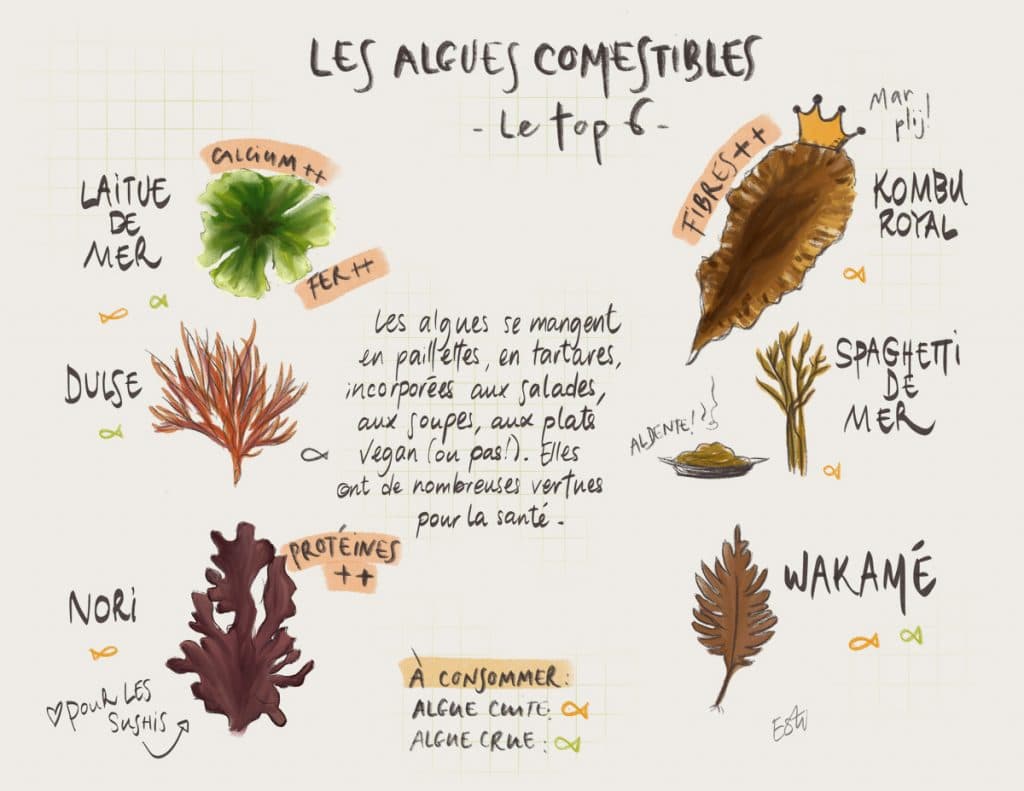 LES ALGUES COMESTIBLES
- Le top 6 -
CALCIUM ++
LAITUE
DE
MER
FER ++
FIBRES ++
Mar
plij!
KOMBU
ROYAL
DULSE
Les algues se mangent
en paillettes, en tartares,
incorporées aux salades,
aux soupes, aux plats
vegan (ou pas!). Elles
ont de nombreuses vertues
pour la santé.
ALDENTE!
SPAGHETTI
DE
MER
NORI
PROTÉINES
++
♡ POUR LES
SUSHIS
WAKAMÉ
À CONSOMMER:
ALGUE CUITE:
ALGUE CRUE: